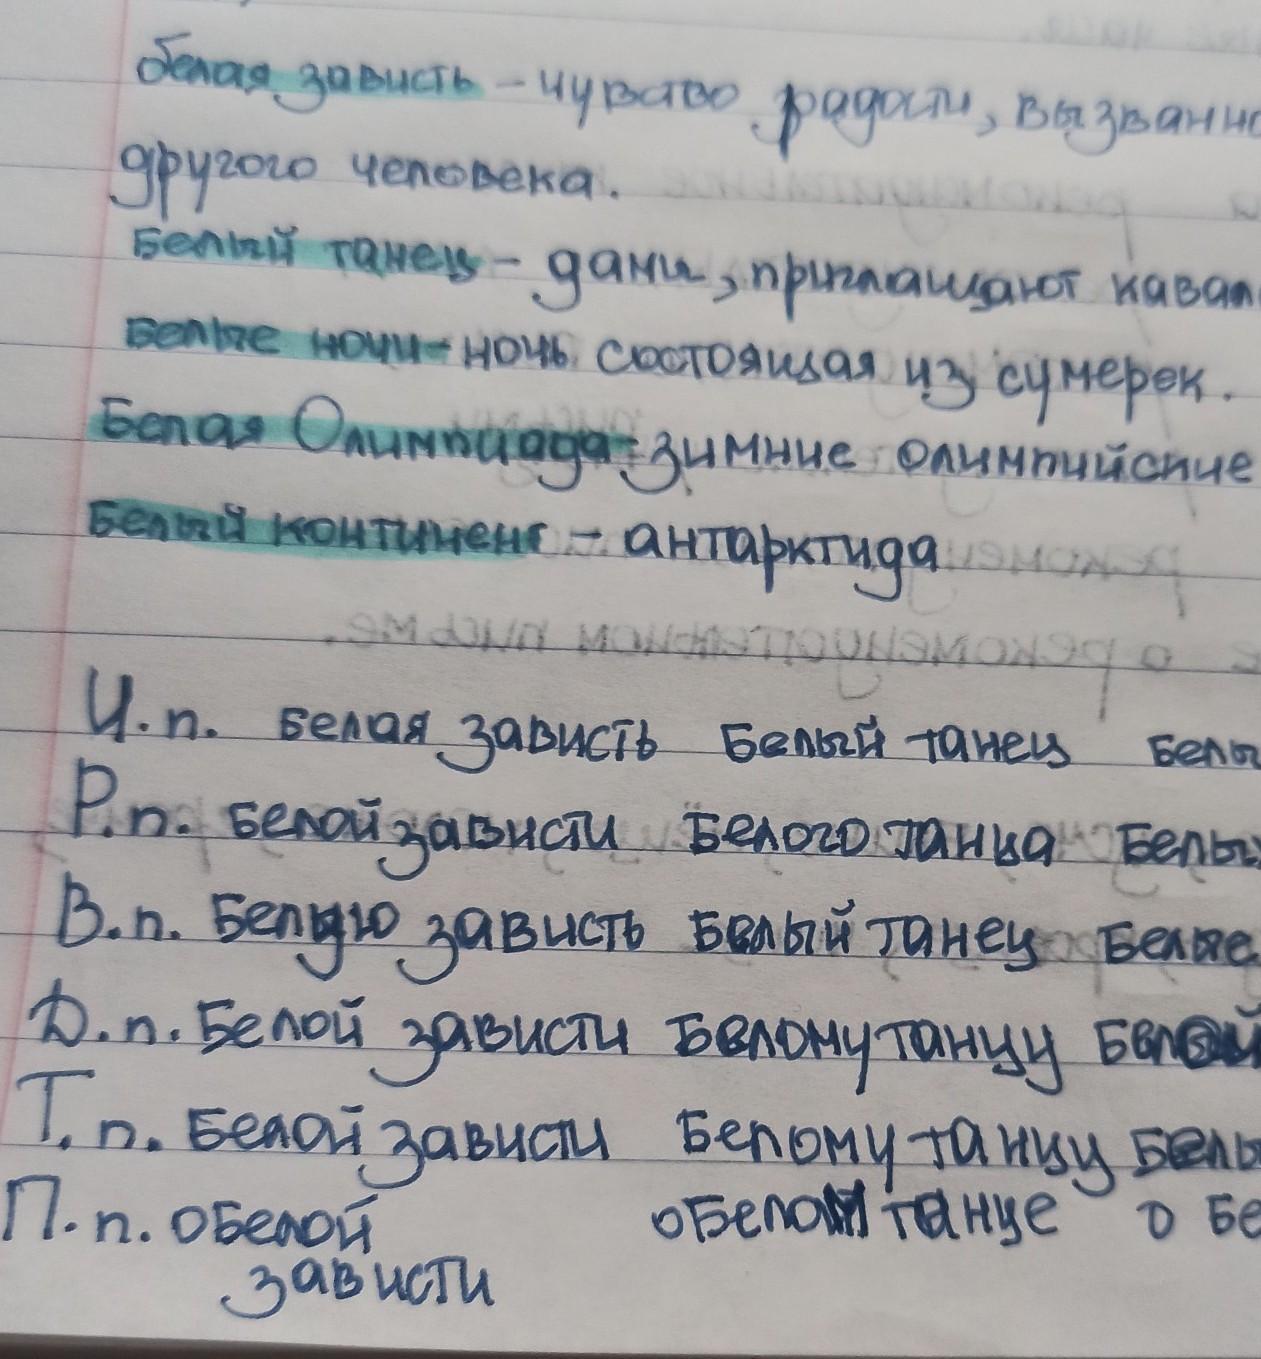 белая зависть - чувство радости, вызванно
другого человека.
Белый танец - дамы, приглашают кавал
Белые ночи - ночь состоящая из сумерек.
Белая Олимпиада - зимние олимпийские
Белый континент - антарктида
И.п. Белая зависть Белый танец Белы
Р.п. Белой зависти Белого танца Белы
В.п. Белую зависть Белый танец Белые
Д.п. Белой зависти Белому танцу
Т.п. Белой зависти Белому танцу Белы
П.п. о Белой о Белом танце о Бе
зависти